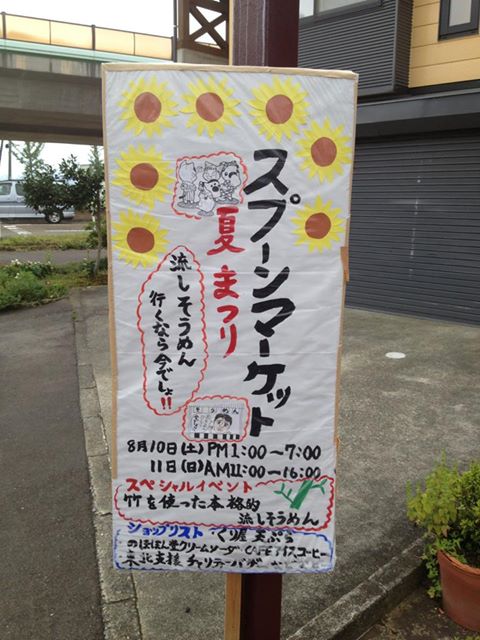 スプーンマーケット
夏まつり
流しそうめん
行くなら今でしょ!!
そうめん
8月10日(土)PM1:00〜7:00
11日(日)AM11:00〜16:00
スペシャルイベント
竹を使った本格的
流しそうめん
ショップリスト くり屋 天ぷら
のほほん堂クリームソーダ CAFE アイスコーヒー
東北支援 チャリティーバザー